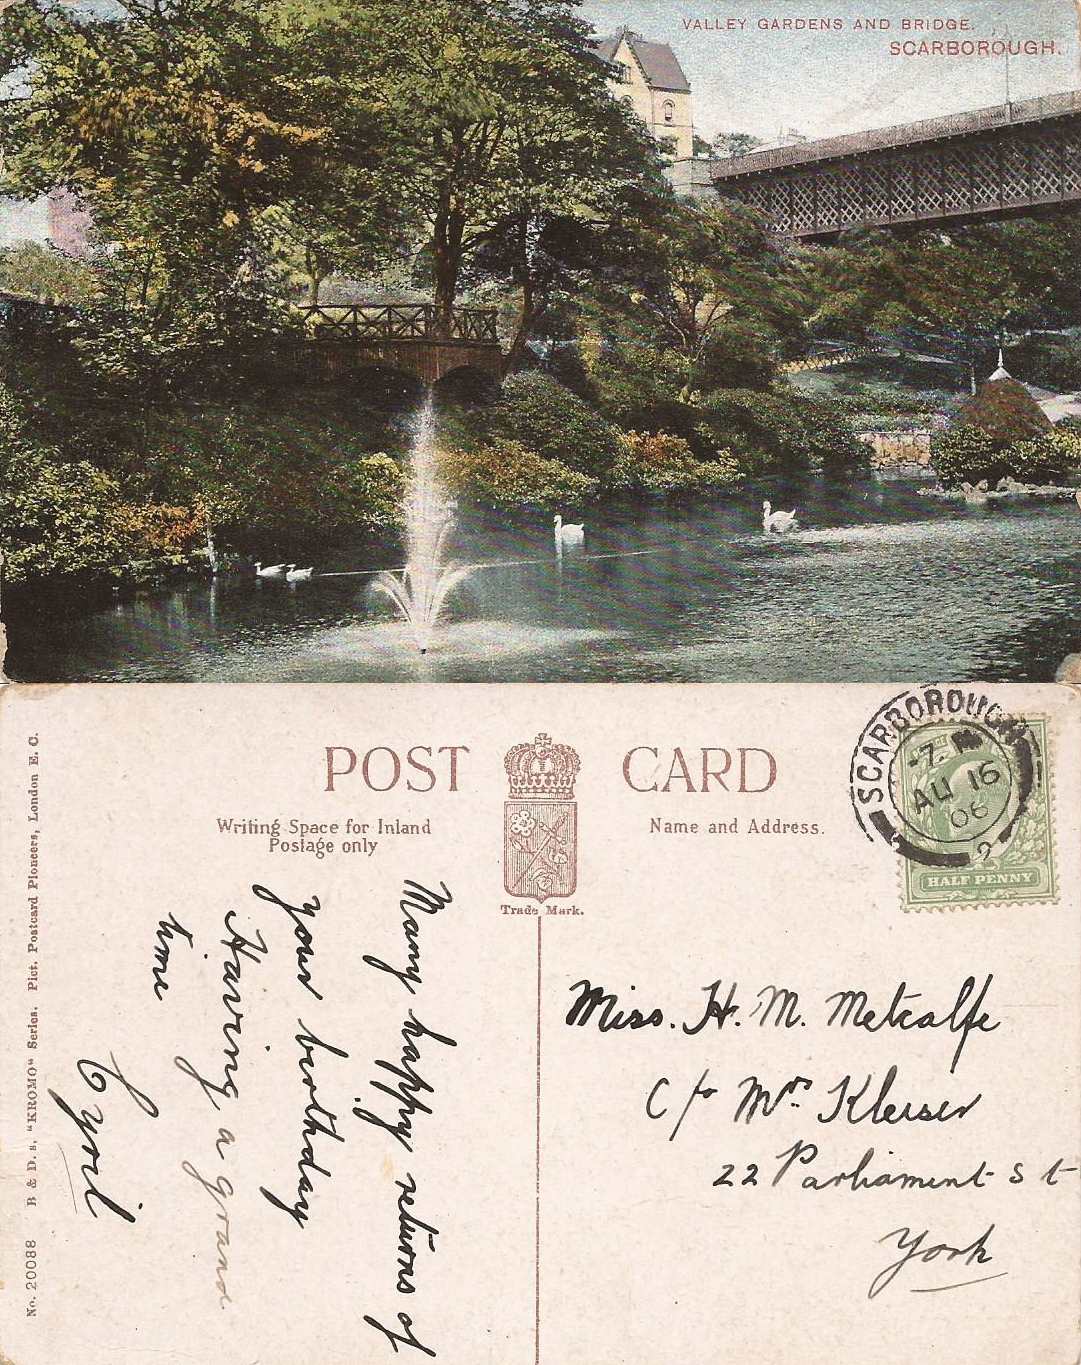 VALLEY GARDENS AND BRIDGE.
SCARBOROUGH.
POST CARD
Writing Space for Inland
Postage only
Name and Address.
Trade Mark.
SCARBOROUGH
7.
AU 16
06
2
HALF PENNY
Many happy returns of
your birthday
Having a grand
time
Cyril
Miss. H. M. Metcalfe
C/o Mrs. Kleiser
22 Parliament St
York
No. 20088 B & D. s, "KROMO" Series. Pict. Postcard Pioneers, London E. C.